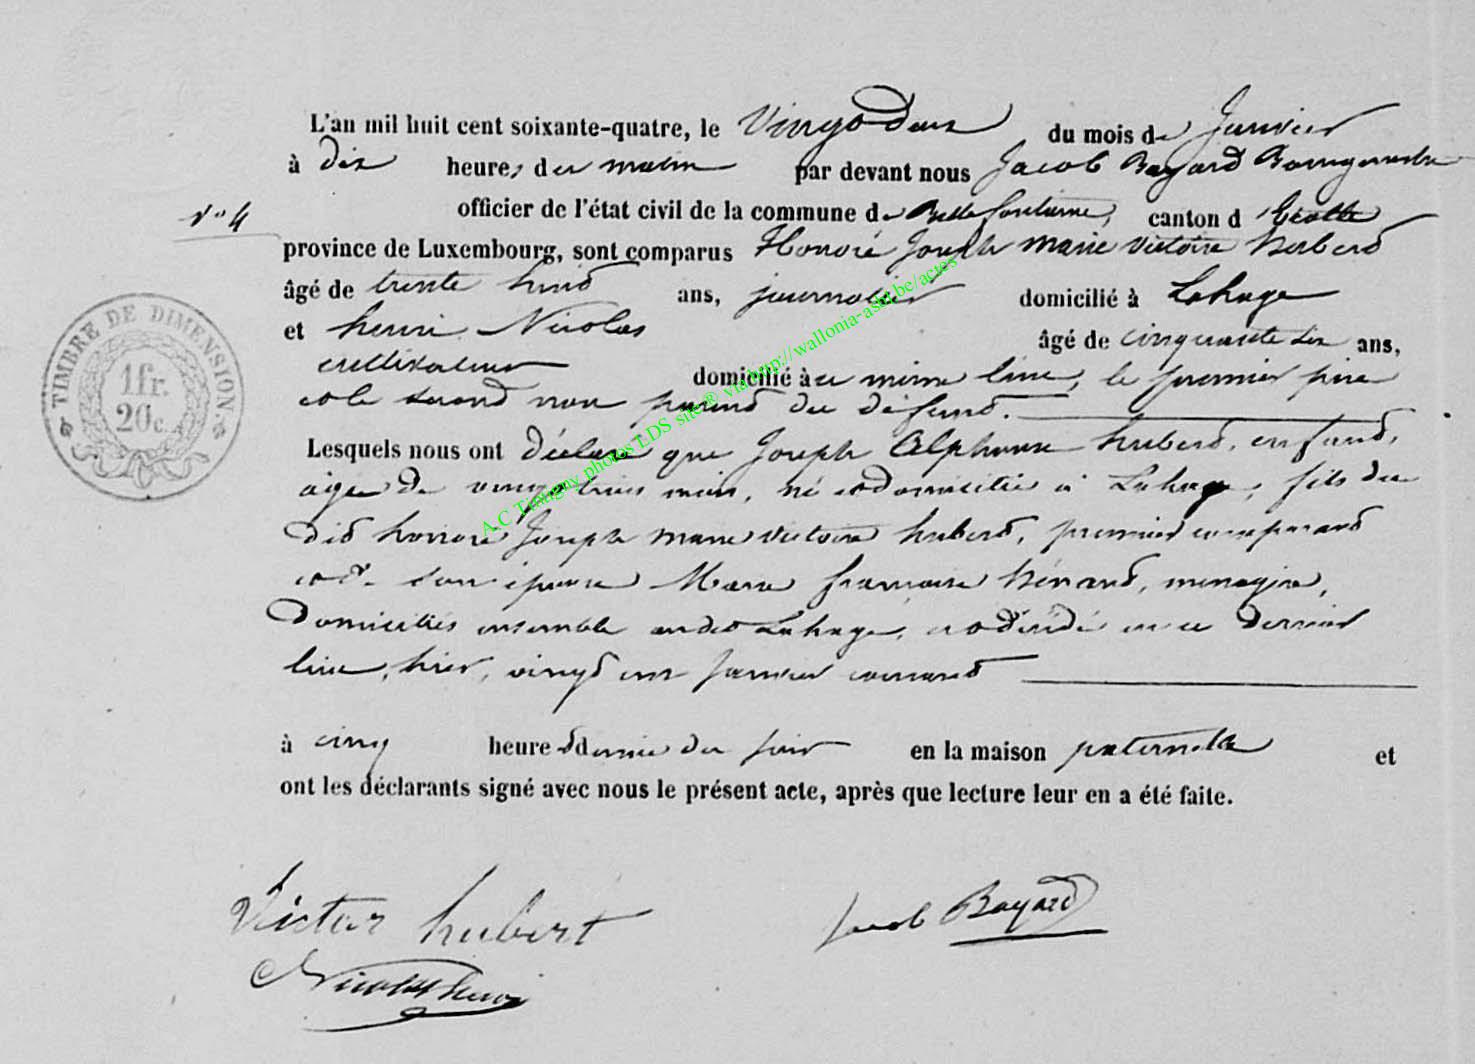 L'an mil huit cent soixante-quatre, le Vingt Deux du mois de Janvier
à dix heures du matin par devant nous Jacob Bayard Bourgmestre
N° 4
officier de l'état civil de la commune de Bellefontaine, canton d' Etalle
province de Luxembourg, sont comparus Honoré Joseph Marie Victoire Hubert
âgé de trente huit ans, journalier domicilié à Lahage
et henri Nicolas âgé de cinquante six ans,
cultivateur domicilié à ce même lieu, le premier père
et le second non parent du défunt.
Lesquels nous ont déclaré que Joseph Alphonse hubert, enfant,
age de vingt trois mois, né et domicilié à Lahage, fils du
dit honoré Joseph Marie Victoire hubert, premier comparant
et de son épouse Marie françoise, menagère,
Domiciliés ensemble audit Lahage, est décédé en ce dernier
lieu, hier, vingt un janvier courant
à cinq heures et demie du soir en la maison paternelle et
ont les déclarants signé avec nous le présent acte, après que lecture leur en a été faite.
TIMBRE DE DIMENSION
1 fr.
20 c.
A.C Tintigny photos EDS site® via http://wallonia-asbl.be/actes
Victor hubert
Jacob Bayard
Nicolas henri